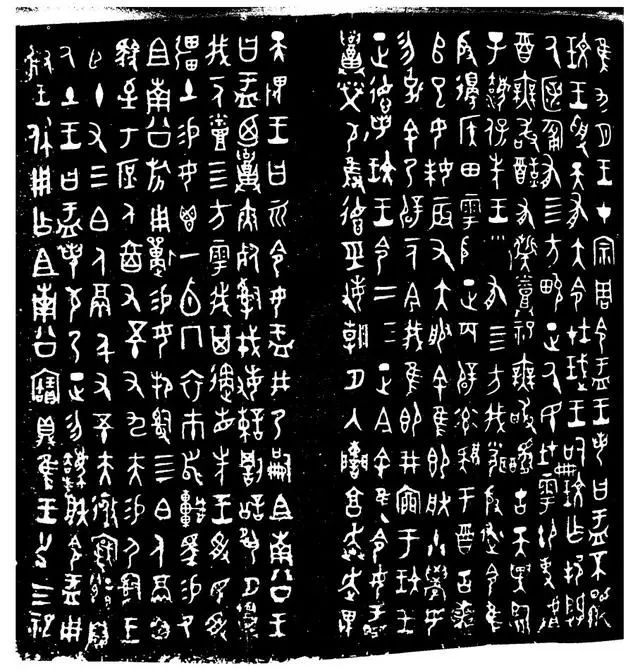 隹九月王才宗周令盂王若曰盂不顯
玟王受天有大令在珷王嗣玟乍邦闢
厥匿匍有四方畯正厥民在雩御事
酉無敢酖有髭烝祀無敢古天異臨
子法保先王有四方我聞殷述令隹
殷邊侯田雩殷正百辟率肄于酉古
已女妹辰又大服余隹即朕小學女
勿余乃辟一人今我隹即井㐭于玟王
正德若玟王令二三正今余隹令女盂
召榮敬雍德巠敏朝夕入諫享奔走畏
天畏王曰令女盂井乃嗣且南公王
曰盂廼召夾死司戎敏諫罰訟夙夕召
我一人烝四方雩我其遹省先王受民受
疆土易女鬯一卣冂衣巿舄車馬易乃
且南公旂用狩易女邦司四白人鬲自
馭至于庶人六百又五十又九夫易尸司王
臣十又三白人鬲千又五十夫遷自
厥土王曰盂若敬乃正勿廢朕令盂用
對王休用乍且南公寶鼎隹王廿又三祀